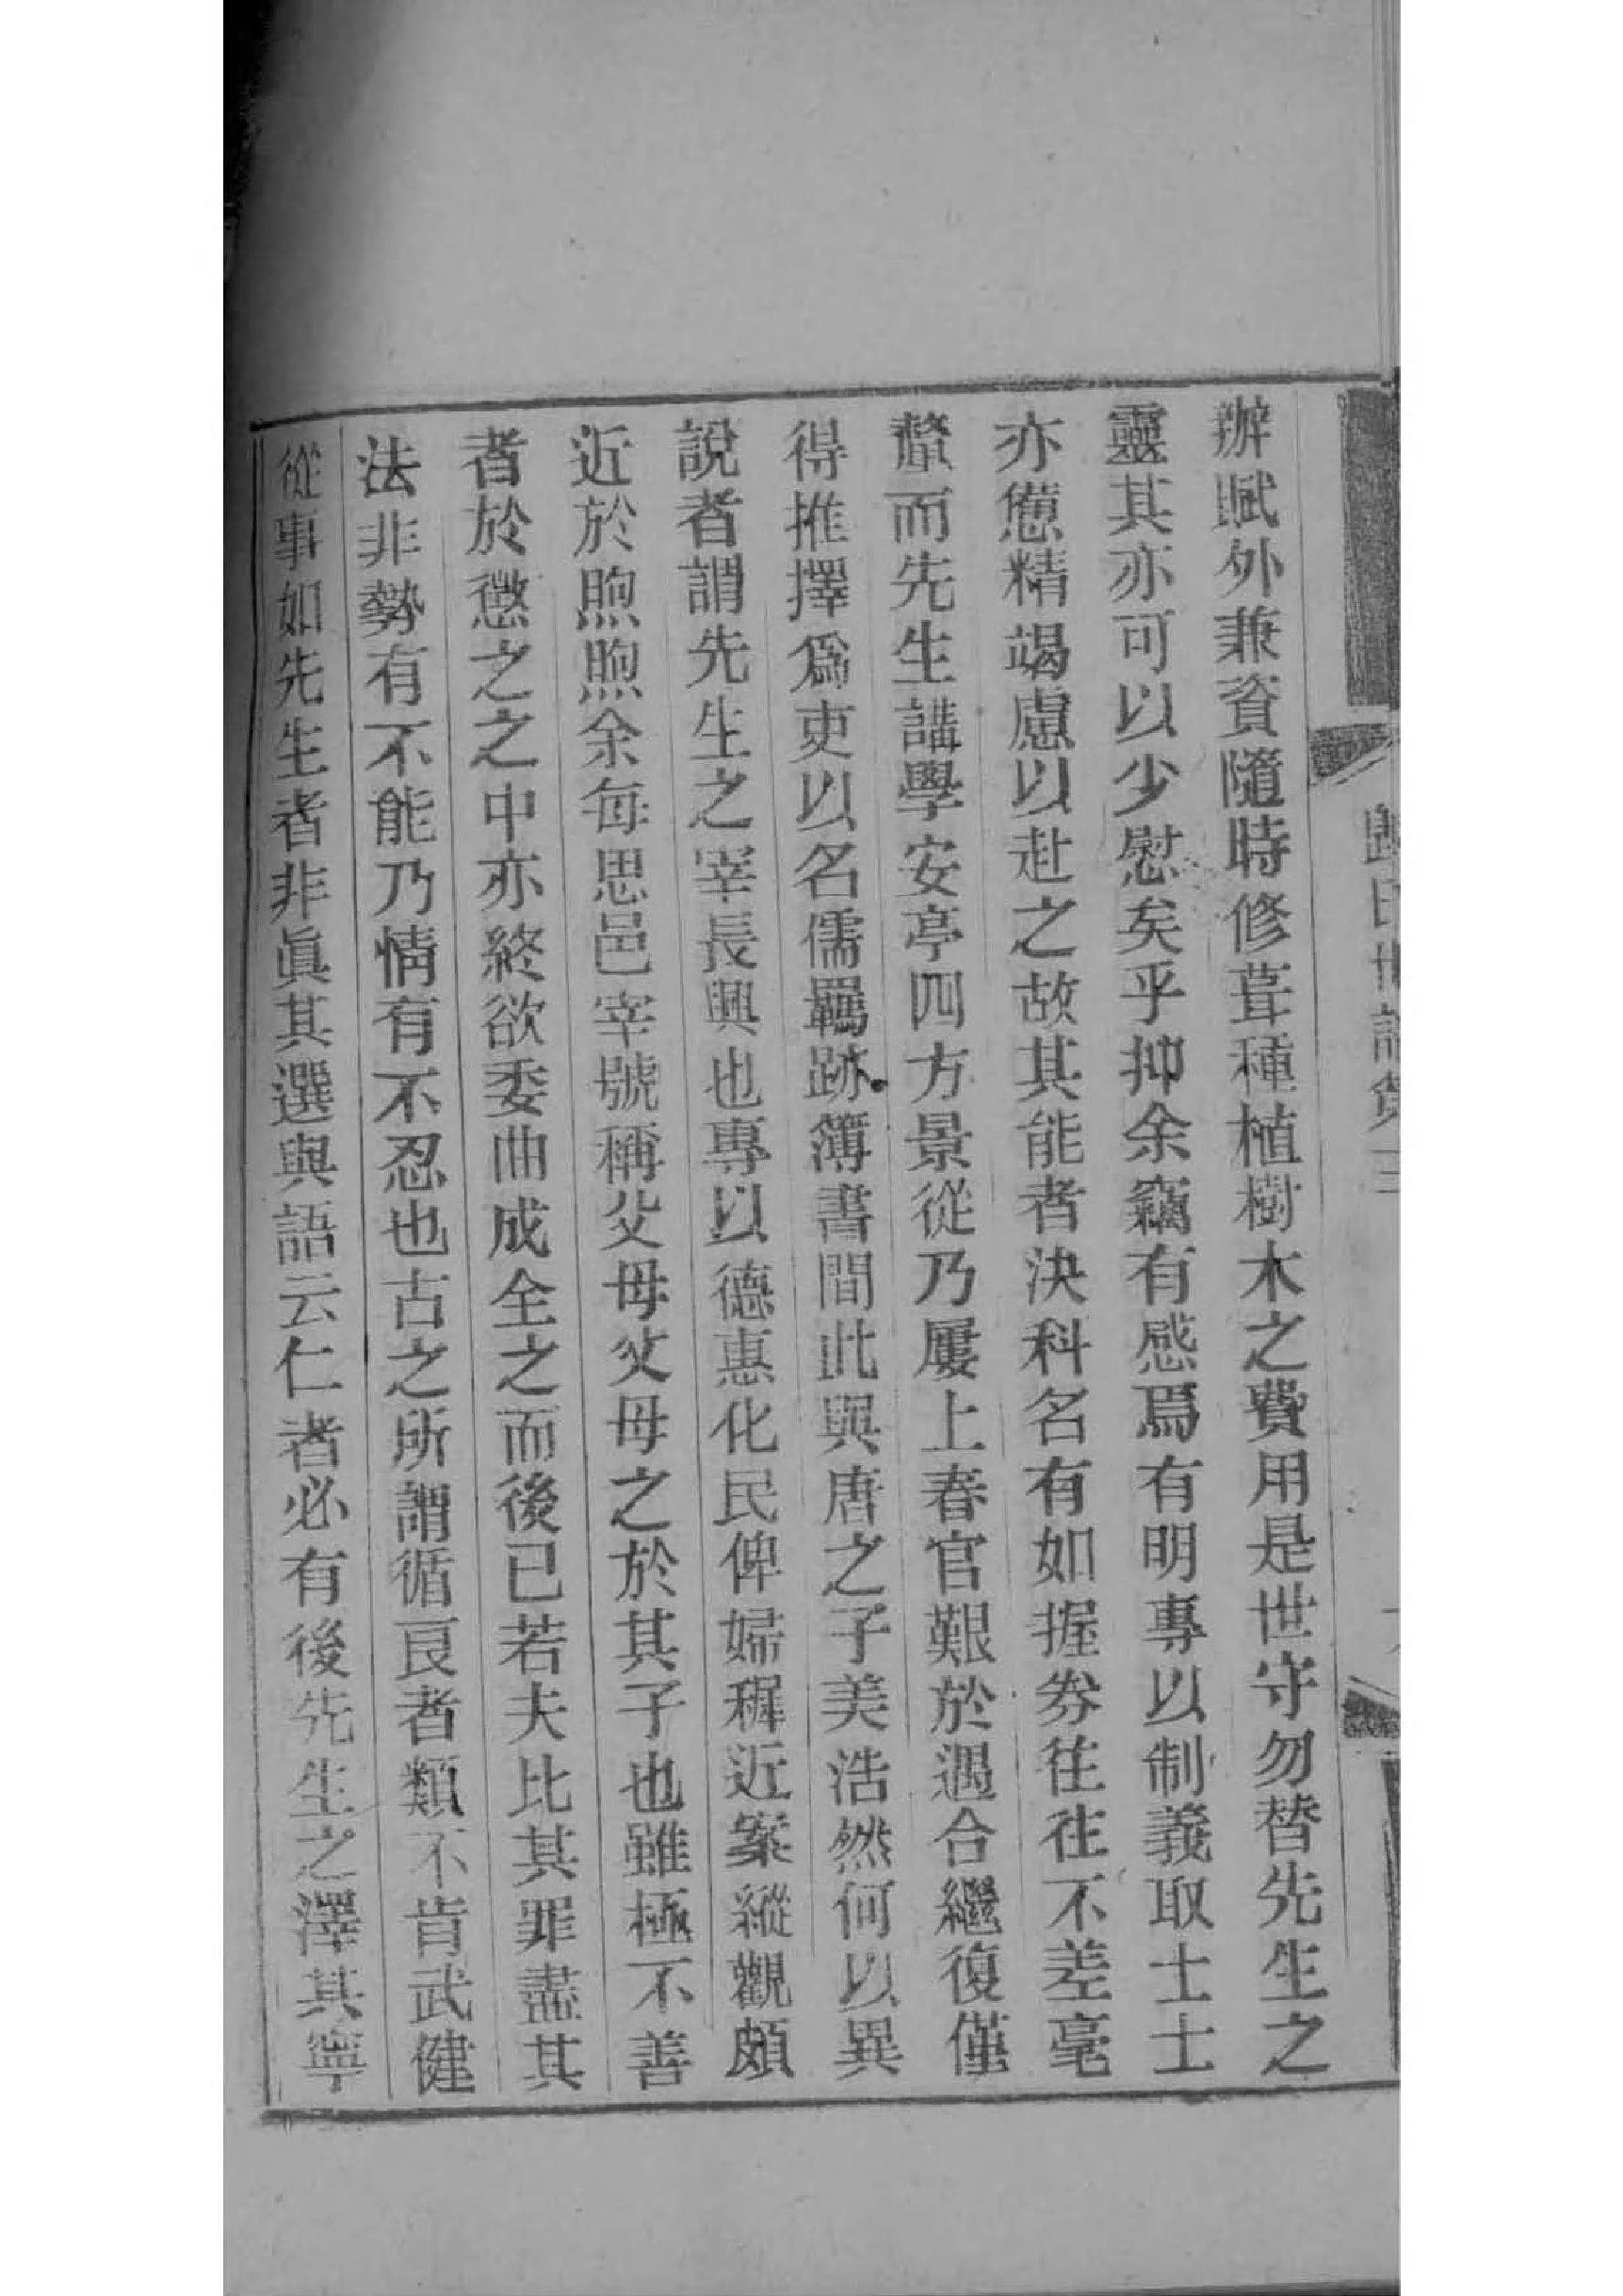 辦賦外兼資隨時修葺種植樹木之費用是世守勿替先生之
靈其亦可以少慰矣乎抑余竊有感焉有明專以制義取士士
亦憊精竭慮以赴之故其能者決科名有如握券往往不差毫
釐而先生講學安亭四方景從乃屢上春官艱於遇合繼復僅
得推擇爲吏以名儒羈跡簿書間此與唐之子美浩然何以異
說者謂先生之宰長興也專以德惠化民俾婦穉近案縱觀頗
近於煦煦余每思邑宰號稱父母父母之於其子也雖極不善
者於懲之之中亦終欲委曲成全之而後已若夫比其罪盡其
法非勢有不能乃情有不忍也古之所謂循良者類不肯武健
從事如先生者非眞其選與語云仁者必有後先生之澤其寧
歸氏世譜